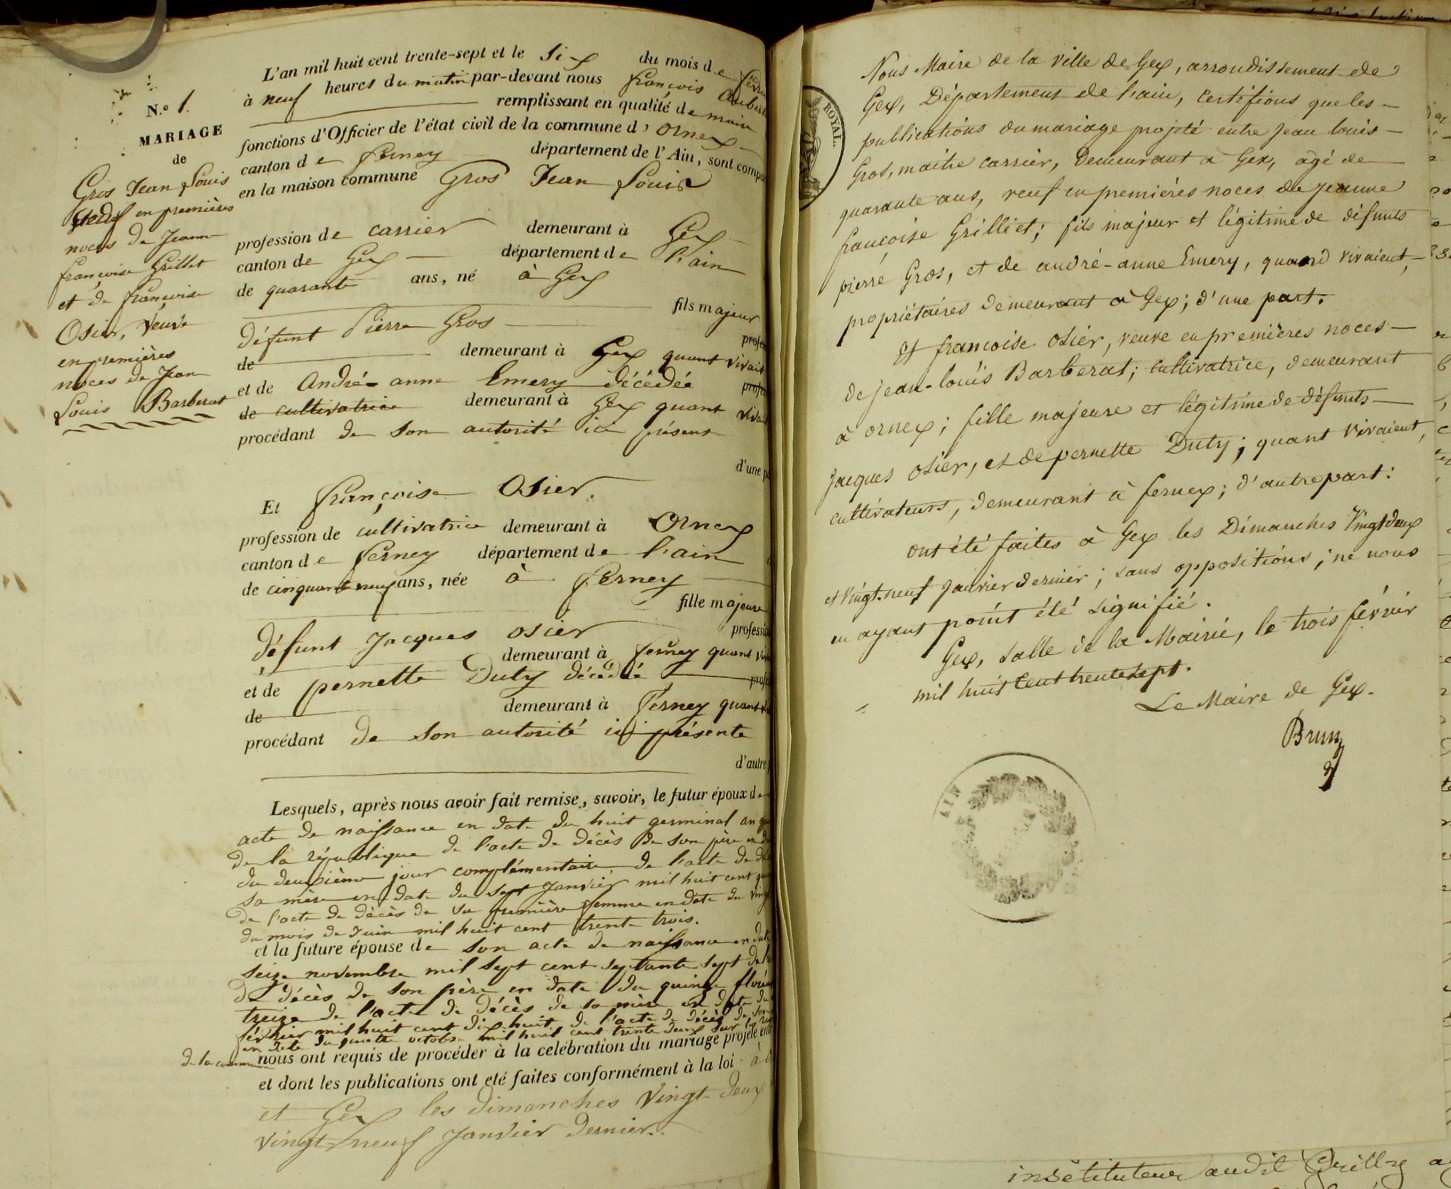 N.o 1.
MARIAGE
de
Gros Jean Louis
veuf en premières
noces de Jeanne
françoise Grillet
et de françoise
Osier, veuve
en premières
noces de Jean
Louis Barberat
L'an mil huit cent trente-sept et le six du mois de
à neuf heures du matin par-devant nous françois
remplissant en qualité de maire
fonctions d'Officier de l'état civil de la commune d'ornex
canton de ferney département de l'Ain, sont
en la maison commune Gros Jean Louis
profession de carrier demeurant à Gex
canton de Gex département de l'ain
de quarante ans, né à Gex
fils majeur
défunt Pierre Gros
de demeurant à Gex quant vivait
et de André-anne Emery décédée
de cultivatrice demeurant à Gex quant
procédant de son autorité ici présent
d'une
Et françoise Osier
profession de cultivatrice demeurant à Ornex
canton de ferney département de l'ain
de cinquante neuf ans, née à ferney
fille majeure
défunt Jacques osier
demeurant à ferney quant
et de pernette Duty décédée
de demeurant à ferney quant
procédant de son autorité ici présente
d'autre
Lesquels, après nous avoir fait remise, savoir, le futur époux de
acte de naissance en date du huit germinal an
de la république de l'acte de décès de son père en
du deuxième jour complémentaire, de l'acte de
sa mère en date du sept janvier mil huit cent
de l'acte de décès de sa première femme en date du
du mois de Juin mil huit cent trente trois.
et la future épouse de son acte de naissance en date
seize novembre mil sept cent septante sept de
décès de son père en date du quinze
treize de l'acte de décès de sa mère en date
février mil huit cent dix huit de l'acte de décès de
en date du octobre mil huit cent trente deux
de la commune nous ont requis de procéder à la celébration du mariage projeté
et dont les publications ont eté faites conformément à la loi à
et Gex les dimanches vingt deux
vingt neuf Janvier dernier.
ROYAL.
Nous Maire de la ville de Gex, arrondissement de
Gex, Département de l'ain, certifions que les
publications du mariage projeté entre Jean louis
Gros, maitre carrier, demeurant à Gex, agé de
quarante ans, veuf en premières noces de jeanne
françoise Grilliet; fils majeur et légitime de défunts
pierre Gros, et de andré-anne Emery, quand vivaient,
propriétaires demeurant à Gex; d'une part.
Et francoise osier, veuve en premières noces
de jean-louis Barberat; cultivatrice, demeurant
à ornex; fille majeure et légitime de défunts
jacques osier, et de pernette Duty; quant vivaient,
cultivateurs, demeurant à fernex; d'autre part:
ont été faites à Gex les Dimanches vingt deux
et vingt-neuf janvier dernier; sans oppositions; ne nous
en ayant point été signifié.
Gex, salle de la Mairie, le trois février
mil huit cent trente sept.
Le Maire de Gex.
Brun
AIN
institut audit